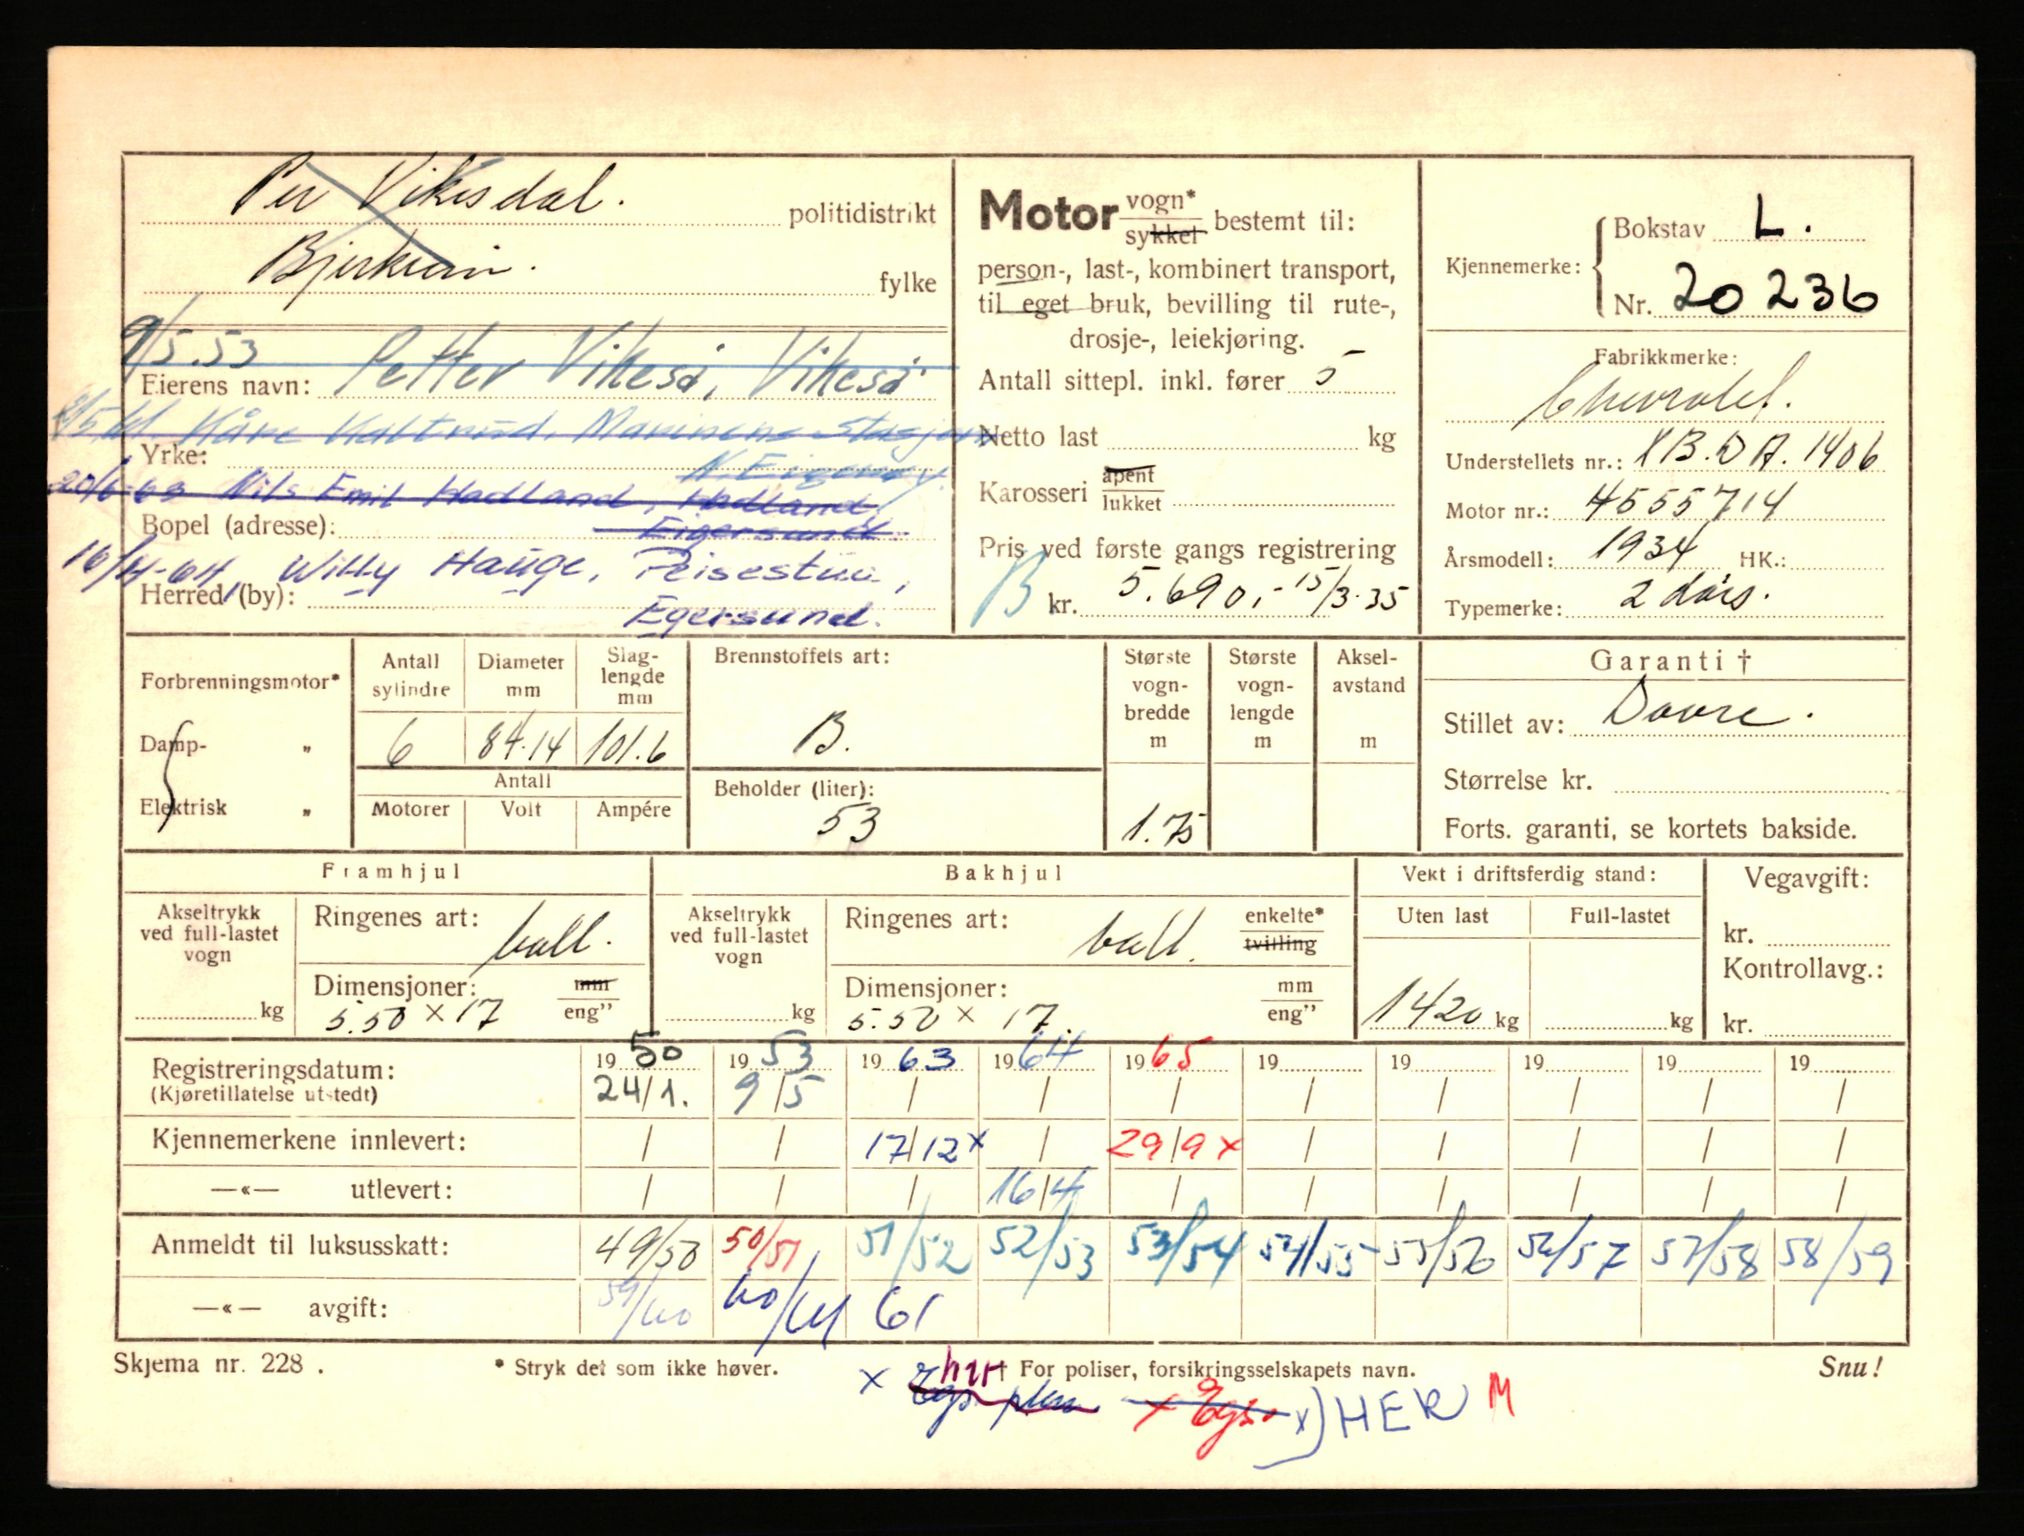 Per Vikesdal.
politidistrikt
Bjerkreim.
fylke
9/5.53 Petter Vikeså, Vikeså
Eierens navn:
Kåre Kaltrud, Marinens Stasjon
Yrke: N. Eigerøy.
20/6-63 Nils Emil Hadland, Hadland,
Bopel (adresse): Eigersund.
16/4-64 Willy Hauge, Peisestua,
Herred (by):
Egersund.
Motor vogn*
sykkel bestemt til:
person-, last-, kombinert transport,
til eget bruk, bevilling til rute-,
drosje-, leiekjøring.
Antall sittepl. inkl. fører 5
Netto last kg
Karosseri åpent
lukket
Pris ved første gangs registrering
B kr. 5.690,- 15/3-35
Kjennemerke: Bokstav L.
Nr. 20236
Fabrikkmerke:
Chevrolet.
Understellets nr.: XB.DA.1406
Motor nr.: 4555714
Årsmodell: 1934 HK.:
Typemerke: 2 dørs.
Forbrenningsmotor*
Damp- „
Elektrisk „
Antall sylindre Diameter mm Slaglengde mm
6 84.14 101.6
Antall
Motorer Volt Ampére
Brennstoffets art:
B.
Beholder (liter):
53
Største vogn-bredde m
1.75
Største vogn-lengde m
Aksel-avstand m
Garanti †
Stillet av: Dovre.
Størrelse kr.
Forts. garanti, se kortets bakside.
Framhjul
Akseltrykk ved full-lastet vogn
kg
Ringenes art: ball.
Dimensjoner: mm
5.50 × 17 eng"
Bakhjul
Akseltrykk ved full-lastet vogn
kg
Ringenes art: ball. enkelte*
tvilling
Dimensjoner: mm
5.50 × 17. eng"
Vekt i driftsferdig stand:
Uten last Full-lastet
1420 kg kg
Vegavgift:
kr.
Kontrollavg.:
kr.
Registreringsdatum: 1950 1953 1963 1964 1965 19 19 19 19 19
(Kjøretillatelse utstedt) 24/1. 9/5 / / / / / / / /
Kjennemerkene innlevert: / / 17/12x / 29/9 x / / / / /
—«— utlevert: / / / 16/4 / / / / / /
Anmeldt til luksusskatt: 49/50 50/51 51/52 52/53 53/54 54/55 55/56 56/57 57/58 58/59
—«— avgift: 59/60 60/61 61
Skjema nr. 228. * Stryk det som ikke høver. † For poliser, forsikringsselskapets navn. Snu!
x Egs. x Egs. x) HER M